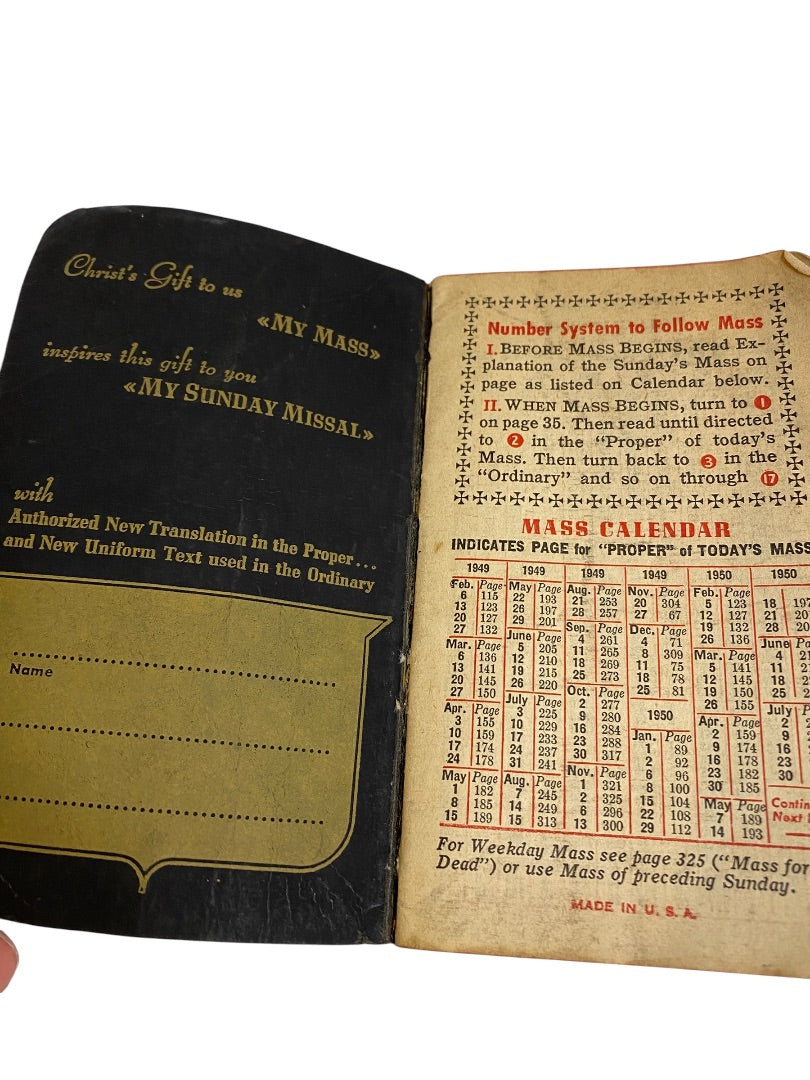 Christ's Gift to us
«MY MASS»
inspires this gift to you
«MY SUNDAY MISSAL»
with
Authorized New Translation in the Proper...
and New Uniform Text used in the Ordinary
Name
Number System to Follow Mass
I. BEFORE MASS BEGINS, read Ex-
planation of the Sunday's Mass on
page as listed on Calendar below.
II. WHEN MASS BEGINS, turn to 1
on page 35. Then read until directed
to 2 in the "Proper" of today's
Mass. Then turn back to 3 in the
"Ordinary" and so on through 17
MASS CALENDAR
INDICATES PAGE for "PROPER" of TODAY'S MASS
1949
Feb. Page
6 115
13 123
20 127
27 132
Mar. Page
6 136
13 141
20 145
27 150
Apr. Page
3 155
10 159
17 174
24 178
May Page
1 182
8 185
15 189
1949
May Page
22 193
26 197
29 201
June Page
5 205
12 210
19 215
26 220
July Page
3 225
10 229
17 233
24 237
31 241
Aug. Page
7 245
14 249
15 313
1949
Aug. Page
21 253
28 257
Sep. Page
4 261
11 265
18 269
25 273
Oct. Page
2 277
9 280
16 284
23 288
30 317
Nov. Page
1 321
2 325
6 296
13 300
1949
Nov. Page
20 304
27 67
Dec. Page
4 71
8 309
11 75
18 78
25 81
1950
Jan. Page
1 89
2 92
6 96
8 100
15 104
22 108
29 112
1950
Feb. Page
5 123
12 127
19 132
26 136
Mar. Page
5 141
12 145
19 150
26 155
Apr. Page
2 159
9 174
16 178
23 182
30 185
May Page
7 189
14 193
1950
18 197
21
28
June
4
11
18
25
July
2
9
16
23
30
Next
For Weekday Mass see page 325 ("Mass for
Dead") or use Mass of preceding Sunday.
MADE IN U. S. A.